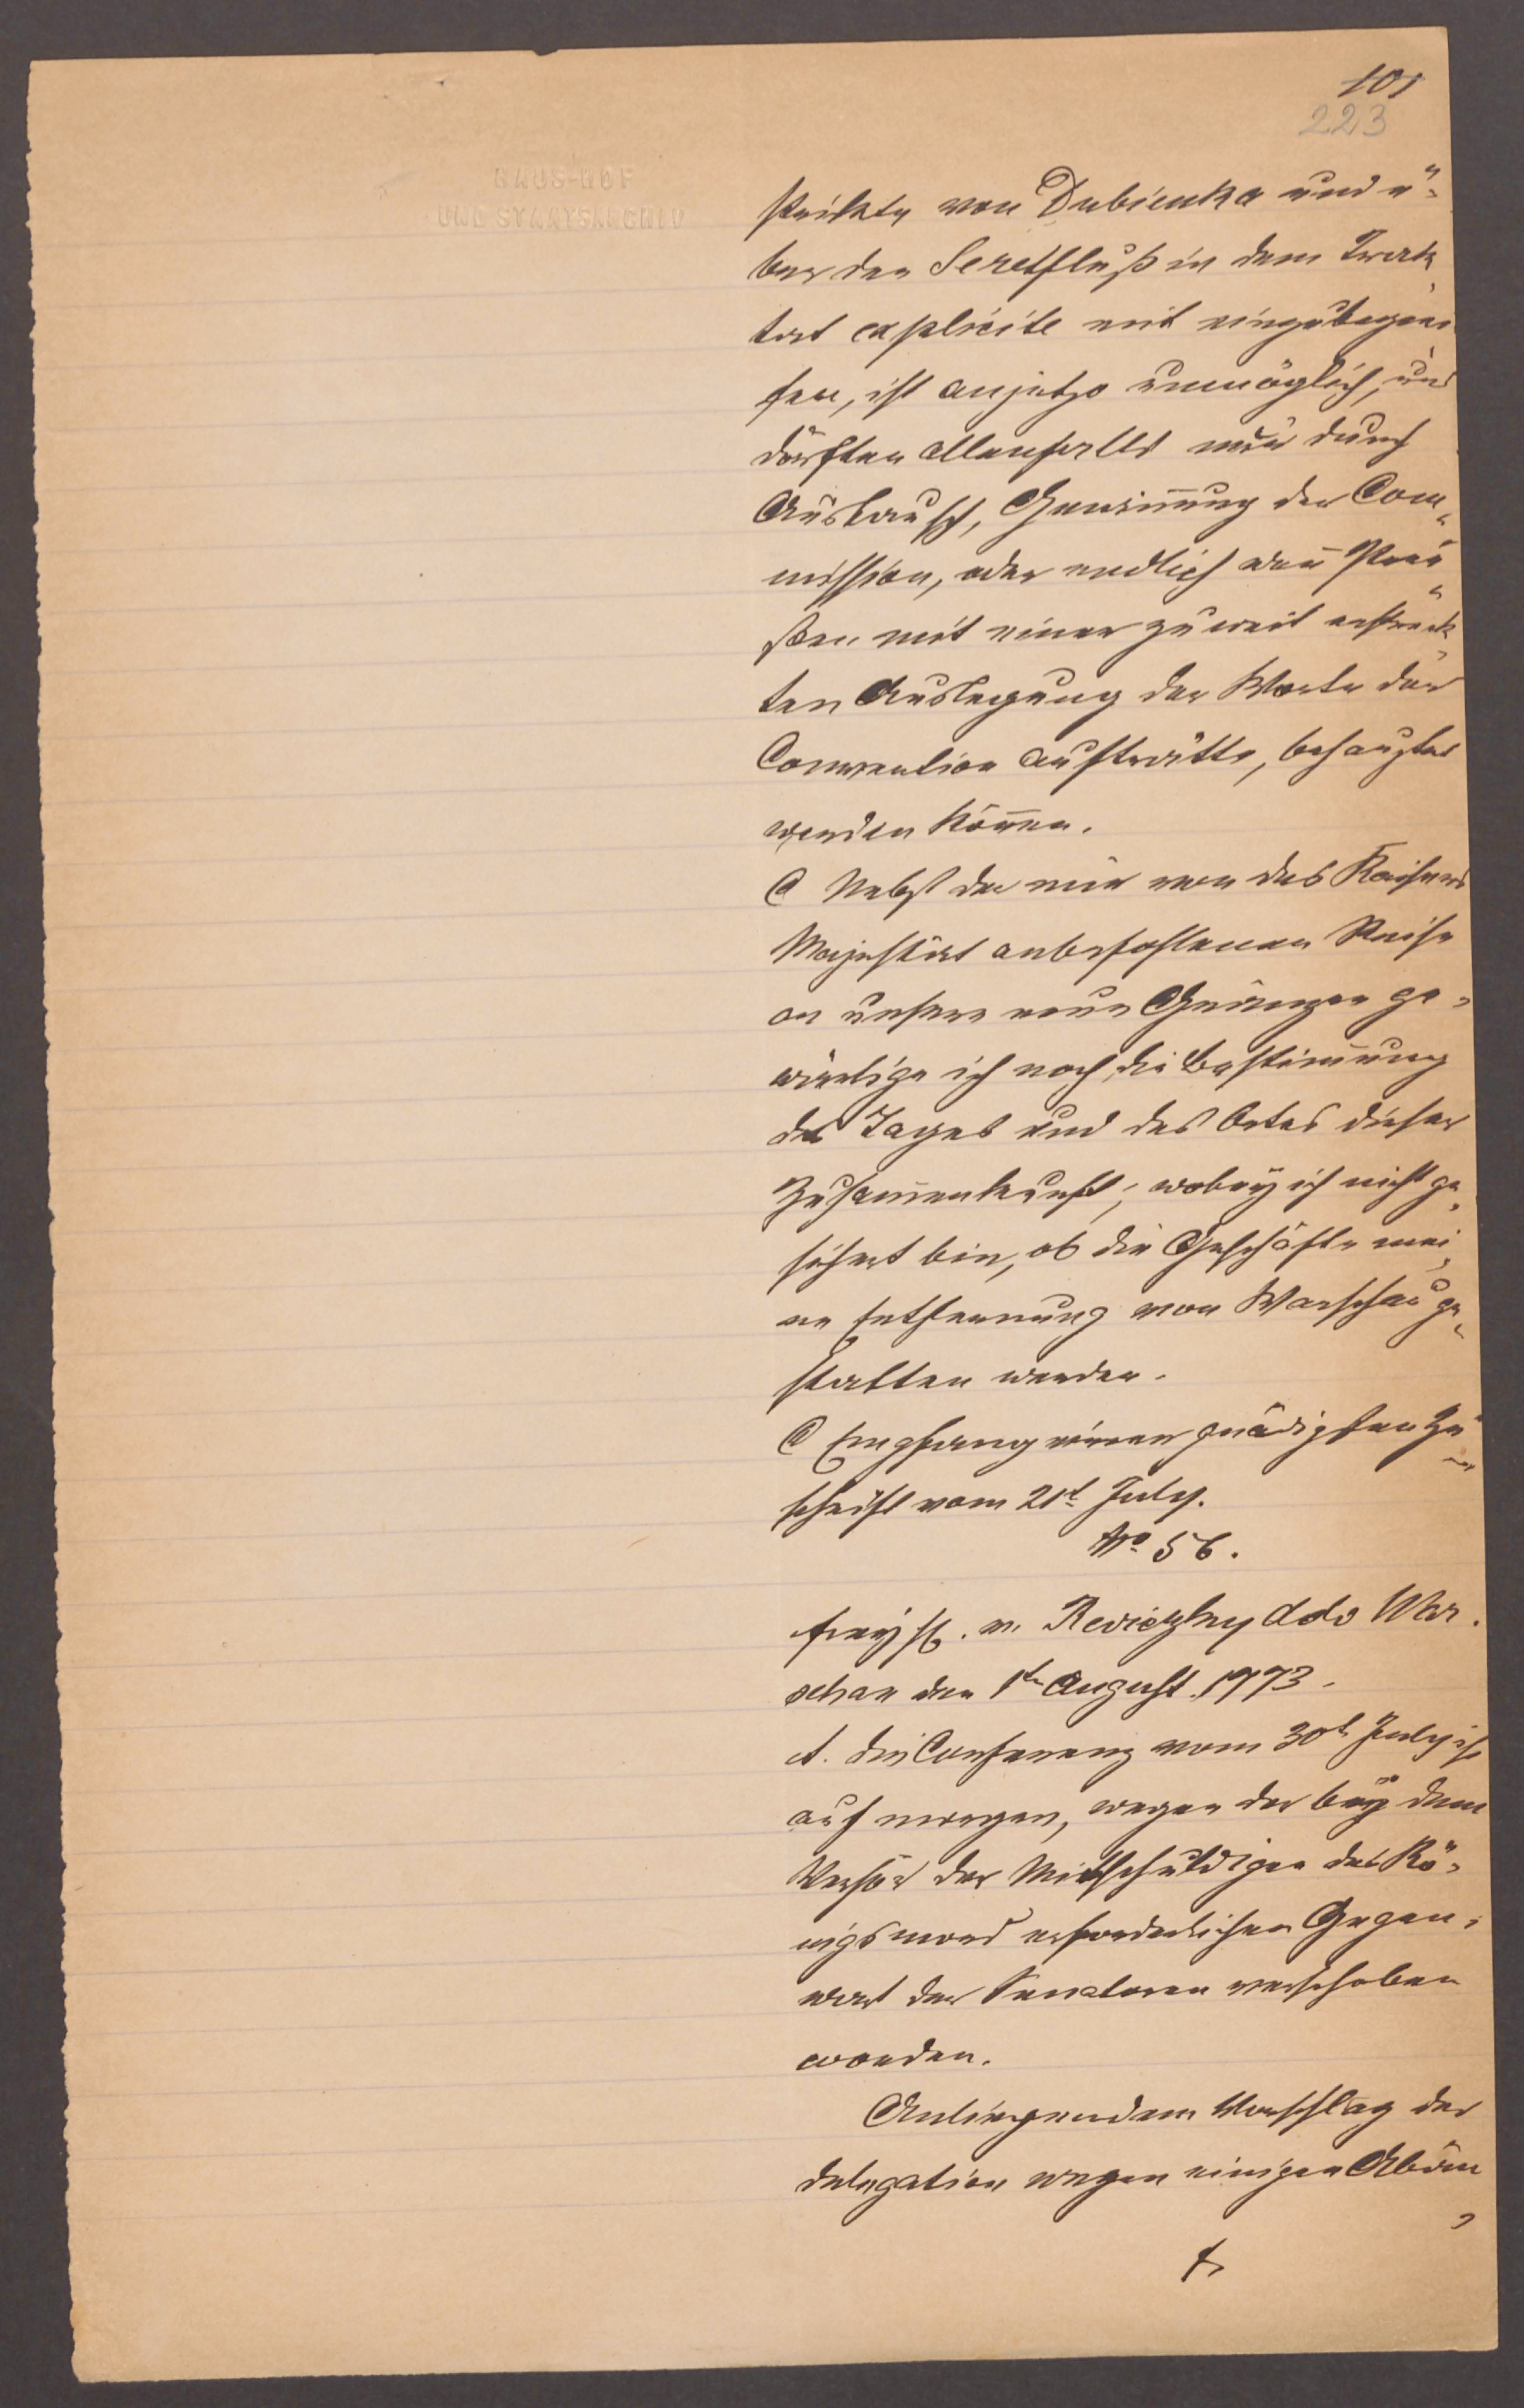 101
223
HAUS-HOF
UND STAATSARCHIV
strikte von Dubienka und ü-
ber den Seretfluß in dem Trak-
tat explicite mit einzubegrei-
fen, ist anjetzo unmöglich, und
dörften allenfalls nur durch
Austausch, Gewinnung der Com-
mission, oder endlich wen̄ Preu-
ßen mit einer zu weit erstreck-
ten Auslegung der Worte der
Convention aufträtte, behauptet
werden kön̄en.
C Nebst der mir von des Kaisers
Majestät anbefohlenen Reise
an unsere neue Gränzen ge-
wärtige ich noch die Bestim̄ung
des Tages und des Ortes dieser
Zusam̄enkunft; wobey ich nicht ge-
sichert bin, ob die Geschäfte mei-
ne Entfernung von Warschau ge-
statten werden.
C Empfang einer gnädigsten Zu-
schrift vom 21t July.
No 56.
Freyh. v. Reviczky ddo War.
schau den 1te August 1773.
A. die Conferenz vom 30t July ist
auf morgen, wegen der bey dem
Verhör der Mitschuldigen des Kö-
nigsmord erforderlichen Gegen-
wart der Senatoren verschoben
worden.
Anliegendem Vorschlag der
delegation wegen einigen Abän-